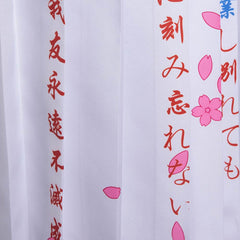 業し別れても
に刻み忘れない
我友永遠不滅